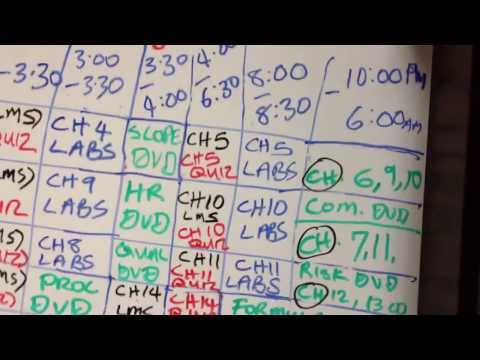 -3:30
3:00
-330
3:30
-
4:00
4:00
-
6:30
8:00
-
8:30
-10:00PM
6:00AM
LMS)
QUIZ
CH4
LABS
SCOPE
DVD
CH5
CH5
QUIZ
CH5
LABS
CH 6,9,10
CH9
LABS
HR
DVD
CH10
LMS
CH10
QUIZ
CH10
LABS
Com. DVD
CH8
LABS
QUAL
DVD
CH11
CH11
QUIZ
CH11
LABS
CH 7,11,
RISK DVD
PROC
DVD
CH14
LMS
CH14
CH 12, 13